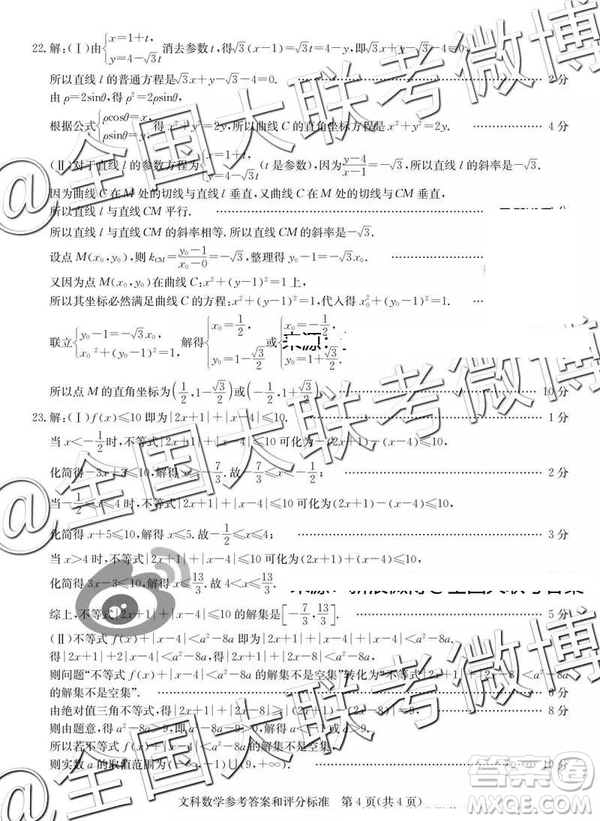 22.解:(Ⅰ)由{x=1+t, y=4-√3t 消去参数t,得√3(x-1)=√3t=4-y,即√3x+y-√3-4=0,
所以直线l的普通方程是√3x+y-√3-4=0. 2分
由ρ=2sinθ,得ρ²=2ρsinθ,
根据公式{ρcosθ=x, ρsinθ=y, 得x²+y²=2y,所以曲线C的直角坐标方程是x²+y²=2y. 4分
(Ⅱ)对于直线l的参数方程为{x=1+t, y=4-√3t (t是参数),因为(y-4)/(x-1)=-√3,所以直线l的斜率为-√3.
因为曲线C在M处的切线与直线l垂直,又曲线C在M处的切线与直线CM垂直,
所以直线l与直线CM平行.
所以直线l与直线CM的斜率相等,所以直线CM的斜率是-√3.
设点M(x₀,y₀),则k_CM=(y₀-1)/(x₀-0)=-√3,整理得y₀-1=-√3x₀.
又因为点M(x₀,y₀)在曲线C:x²+(y-1)²=1上,
所以其坐标必然满足曲线C的方程:x²+(y-1)²=1,代入得x₀²+(y₀-1)²=1.
联立{y₀-1=-√3x₀, x₀²+(y₀-1)²=1, 解得{x₀=1/2, y₀=1-√3/2 或{x₀=-1/2, y₀=1+√3/2. 来源:
所以点M的直角坐标为(1/2,1-√3/2)或(-1/2,1+√3/2). 10分
23.解:(Ⅰ)f(x)≤10即为|2x+1|+|x-4|≤10. 1分
当x<-1/2时,不等式|2x+1|+|x-4|≤10可化为-(2x+1)-(x-4)≤10,
化简得-3x+3≤10,解得x≥-7/3.故-7/3≤x<-1/2; 2分
当-1/2≤x≤4时,不等式|2x+1|+|x-4|≤10可化为(2x+1)-(x-4)≤10,
化简得x+5≤10,解得x≤5.故-1/2≤x≤4; 3分
当x>4时,不等式|2x+1|+|x-4|≤10可化为(2x+1)+(x-4)≤10,
化简得3x-3≤10,解得x≤13/3.故4<x≤13/3.
综上,不等式|2x+1|+|x-4|≤10的解集是[-7/3,13/3]. 5分
(Ⅱ)不等式f(x)+|x-4|<a²-8a即为|2x+1|+|x-4|+|x-4|<a²-8a.
得|2x+1|+2|x-4|<a²-8a,得|2x+1|+|2x-8|<a²-8a,
则问题“不等式f(x)+|x-4|<a²-8a的解集不是空集”转化为“不等式|2x+1|+|2x-8|<a²-8a
的解集不是空集”. 6分
由绝对值三角不等式,得|2x+1|+|2x-8|≥|(2x+1)-(2x-8)|=9. 8分
则由题意,得a²-8a>9,即a²-8a-9>0,解得a<-1或a>9.
所以若不等式f(x)+|x-4|<a²-8a的解集不是空集,
则实数a的取值范围为(-∞,-1)∪(9,+∞). 10分
文科数学参考答案和评分标准 第4页(共4页)
@全国大联考微博
@全国大联考微博
@全国大联考微博